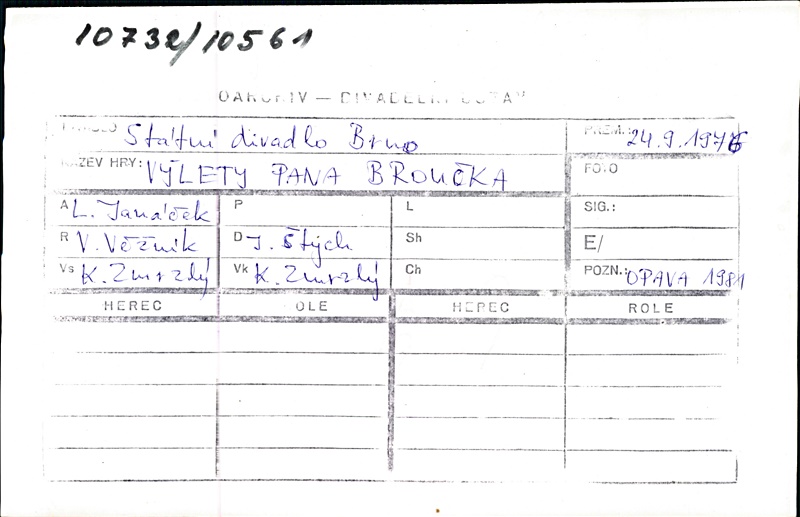 10732/10561
Státní divadlo Brno PREM.: 24.9.1976
NÁZEV HRY: VÝLETY PANA BROUČKA FOTO
A L. Janáček P L SIG.:
R V. Věžník D J. Štych Sh E/
Vs K. Zmrzlý Vk K. Zmrzlý Ch POZN.: OPAVA 1981
HEREC ROLE HEREC ROLE